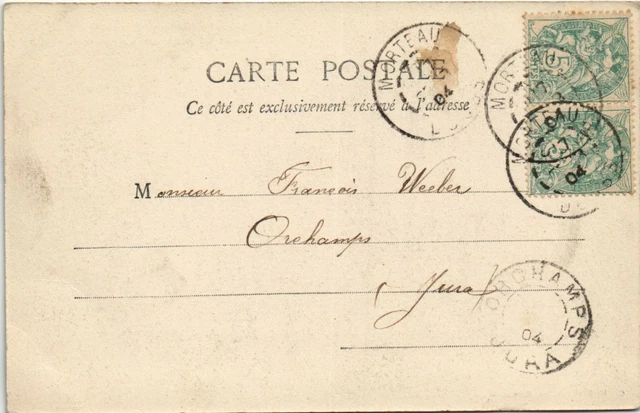 CARTE POSTALE
Ce côté est exclusivement réservé à l'adresse
Monsieur François Weeber
Orchamps
Jura
MORTEAU
04
DOUBS
MORTEAU
MORTEAU
04
ORCHAMPS
04
JURA